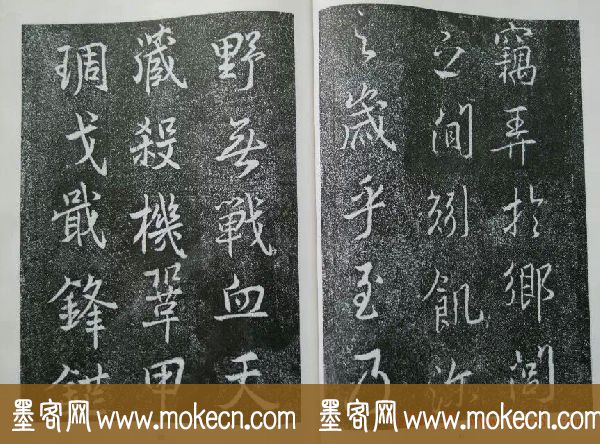 竊弄於鄉閭
之間矧飢
之歲乎至乃
野無戰血天
藏殺機鞏甲
琱戈戢鋒
墨客网 www.mokecn.com
墨客网 www.mokecn.com